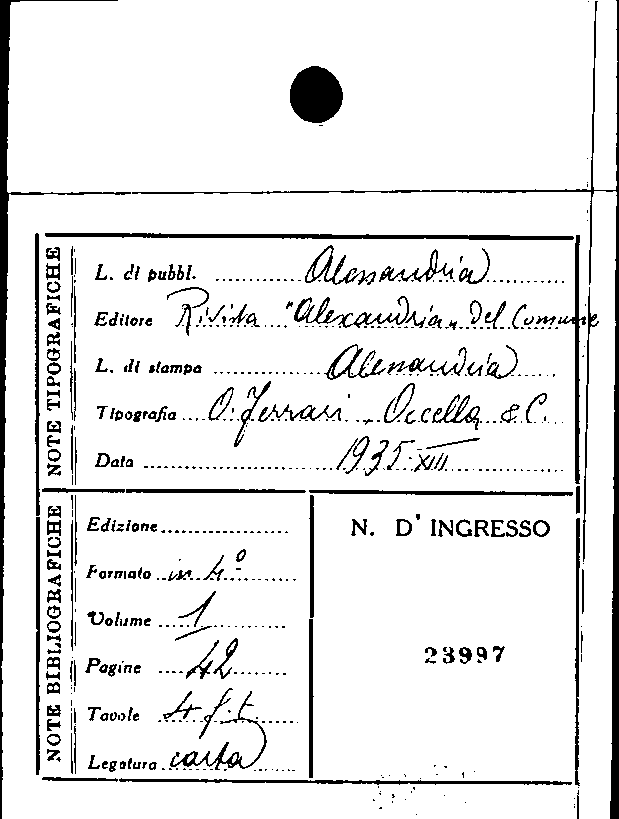 NOTE TIPOGRAFICHE
L. di pubbl. Alessandria
Editore Rivista "Alexandria" del Comune
L. di stampa Alessandria
Tipografia O. Ferrari, Occella & C.
Data 1935-XIII
NOTE BIBLIOGRAFICHE
Edizione
Formato in 4º
Volume 1
Pagine 42
Tavole 4 f. t.
Legatura carta
N. D' INGRESSO
23997